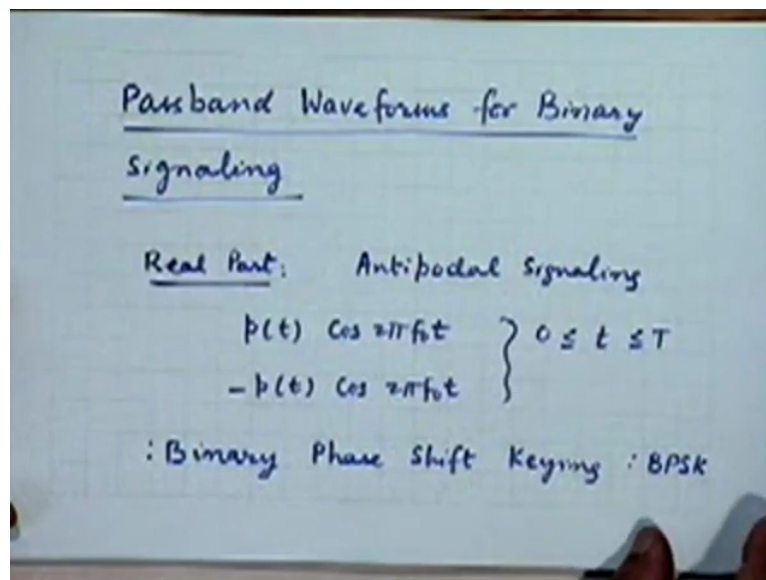 Passband Waveforms for Binary
Signaling
Real Part: Antipodal Signaling
p(t) Cos 2πf₀t } 0 ≤ t ≤ T
- p(t) Cos 2πf₀t
: Binary Phase Shift Keying : BPSK